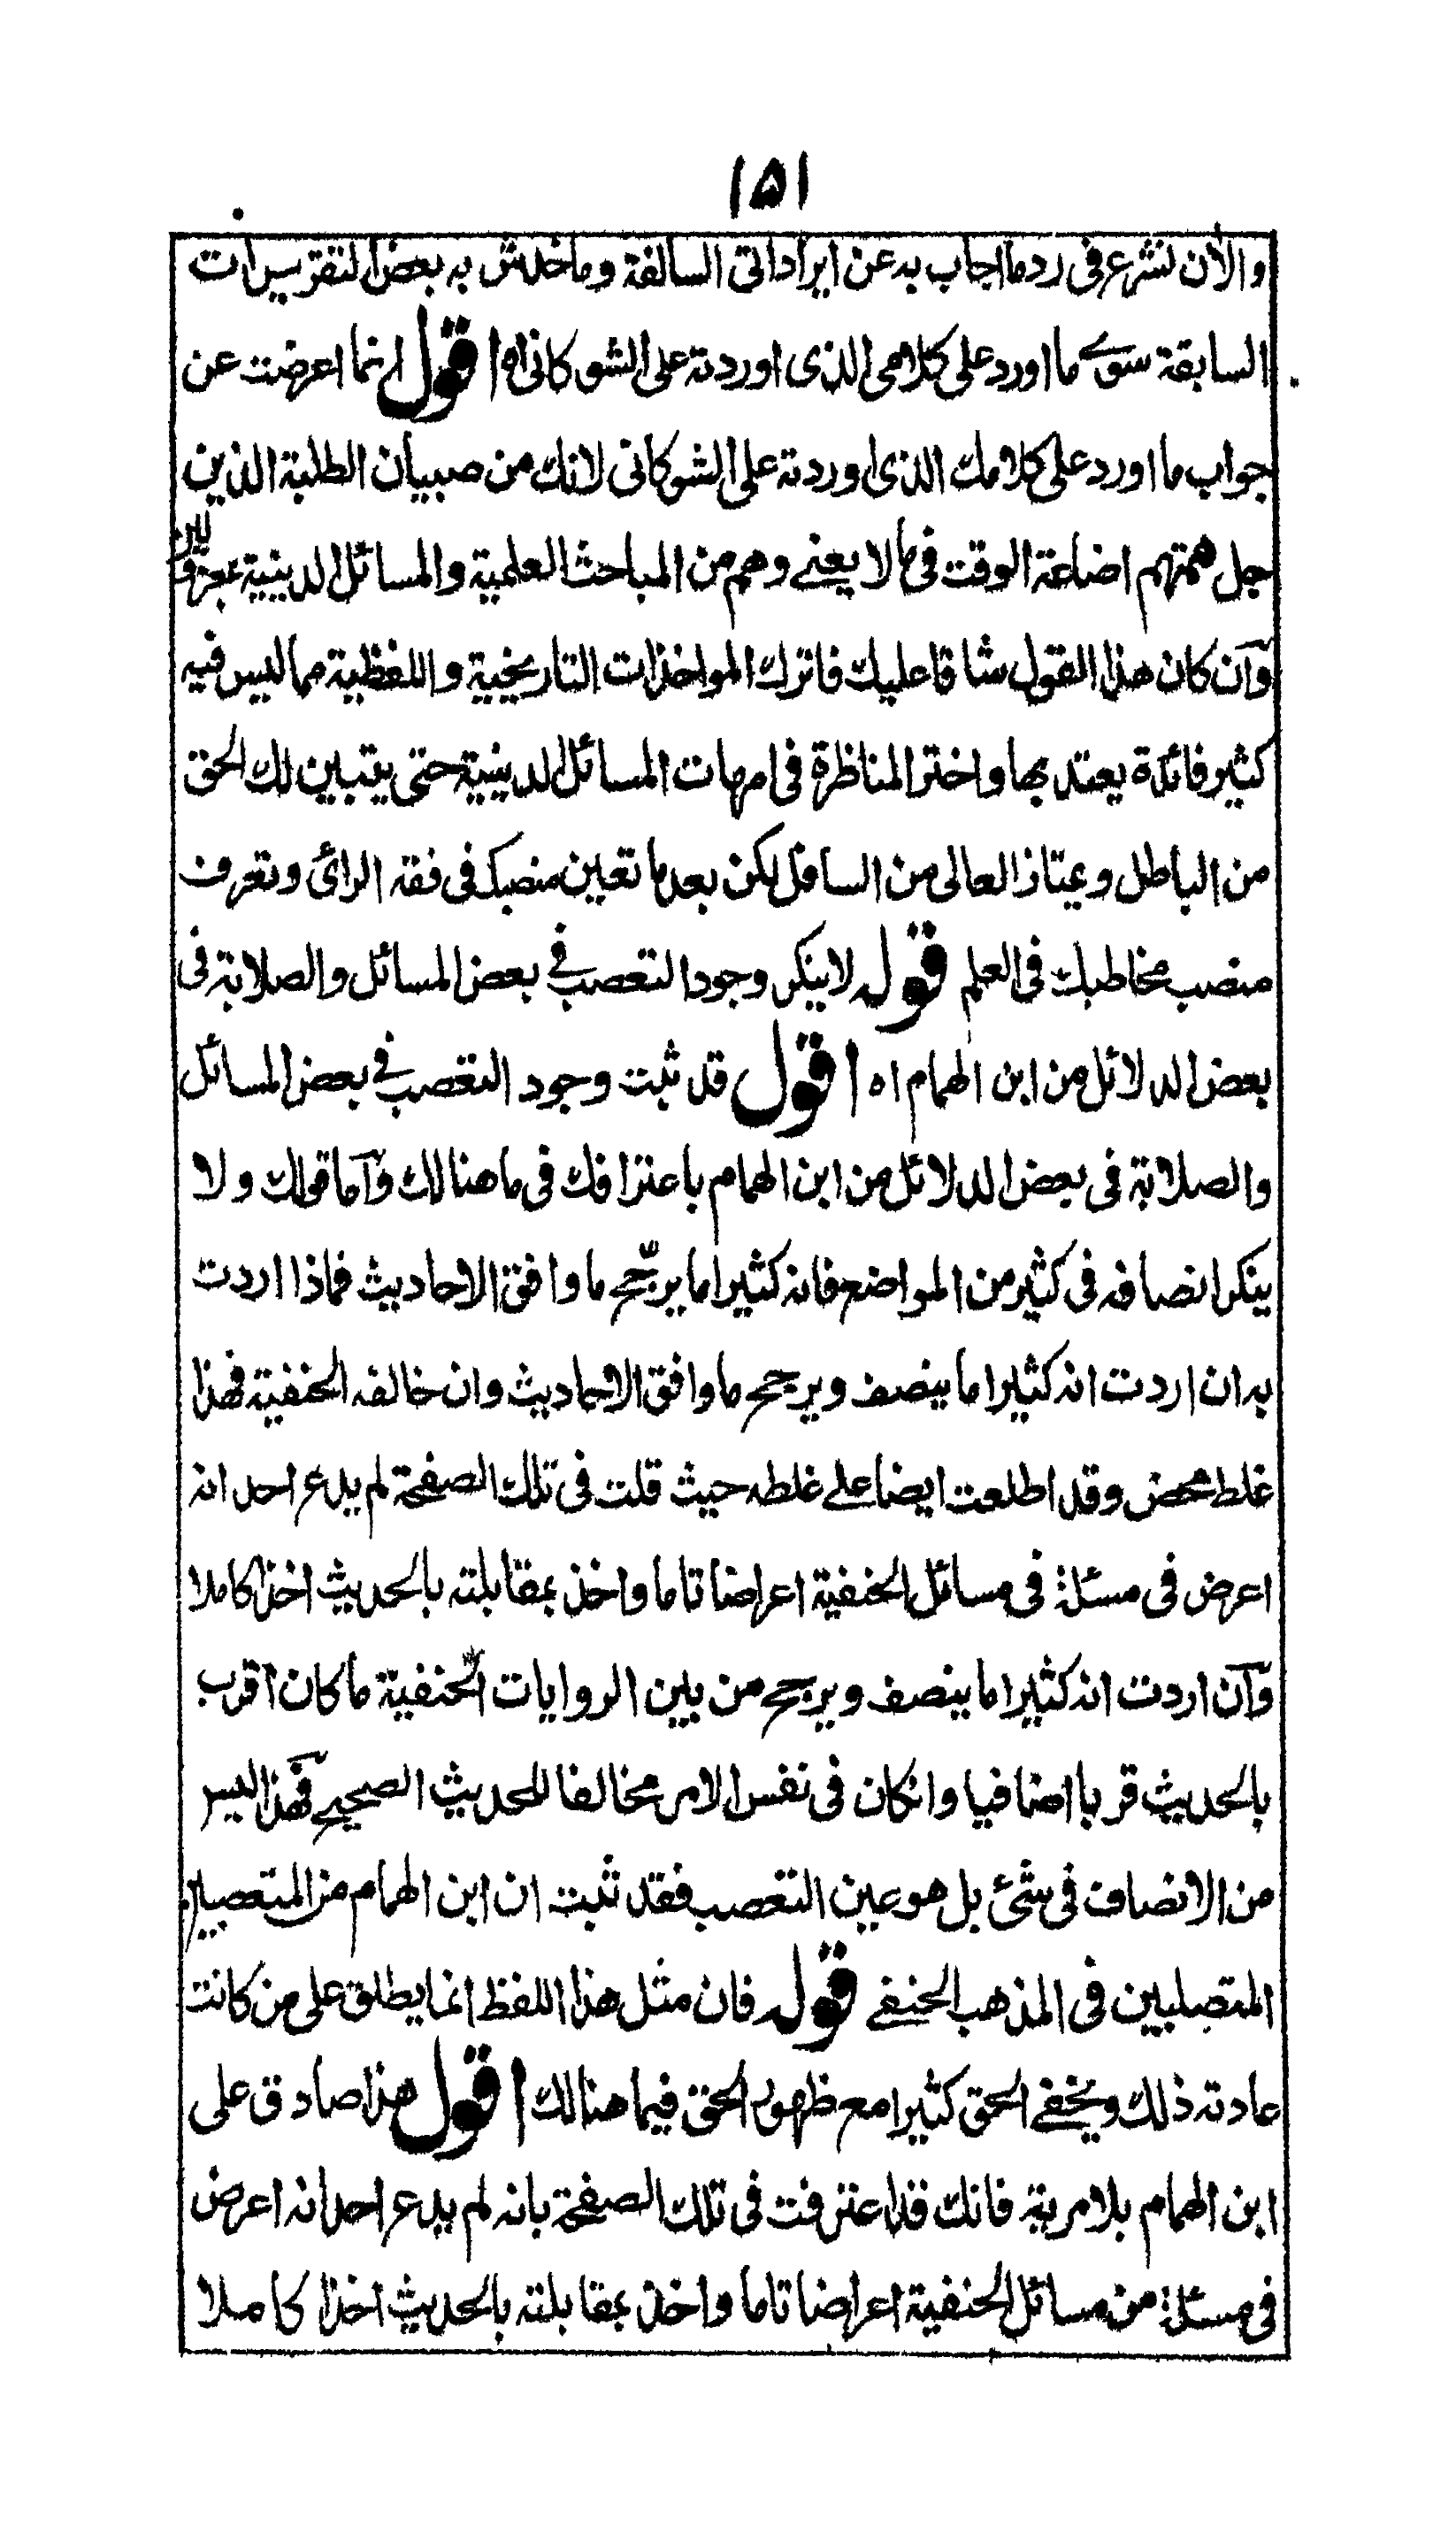 ١٥١
والآن نشرع فى رد ما اجاب به عن ايراداتى السالفة وما خدش به بعض التقريرات
السابقة سوے ما اورد على كلامى الذى اوردته على الشوكانى اه اقول انما اعرضت عن
جواب ما اورد على كلامك الذى اوردته على الشوكانى لانك من صبيان الطلبة الذين
جل همتهم اضاعة الوقت فى ما لا يعنے وهم من المباحث العلمية والمسائل الدينية بمعزولين
وآن كان هذا القول شاقا عليك فاترك المواخذات التاريخية واللفظية مما ليس فيه
كثير فائدة يعتد بها واختر المناظرة فى امهات المسائل الدينية حتى يتبين لك الحق
من الباطل ويمتاز العالى من السافل لكن بعد ما تعين منصبك فى فقه الرائ وتعرف
منصب مخاطبك فى العلم قوله لا ينكر وجود التعصب فے بعض المسائل والصلابة فى
بعض الدلائل من ابن الهمام اه اقول قد ثبت وجود التعصب فے بعض المسائل
والصلابة فى بعض الدلائل من ابن الهمام باعترافك فى ما هنالك وآما قولك ولا
ينكر انصافه فى كثير من المواضع فانه كثيرا ما يرجّح ما وافق الاحاديث فماذا اردت
به ان اردت انه كثيرا ما ينصف ويرجح ما وافق الاحاديث وان خالفه الحنفية فهذا
غلط محض وقد اطلعت ايضا علے غلطه حيث قلت فى تلك الصفحة لم يدع احد انه
اعرض فى مسئلة فى مسائل الحنفية اعراضا تاما واخذ بمقابلته بالحديث اخذا كاملا
وآن اردت انه كثيرا ما ينصف ويرجح من بين الروايات الحنفية ما كان اقرب
بالحديث قربا اضافيا وانكان فى نفس الامر مخالفا للحديث الصحيح فهذا ليس
من الانصاف فى شئ بل هو عين التعصب فقد ثبت ان ابن الهمام من المتعصبين
المتصلبين فى المذهب الحنفے قوله فان مثل هذا اللفظ انما يطلق على من كانت
عادته ذلك ويخفے الحق كثيرا مع ظهور الحق فيما هنالك اقول هذا صادق على
ابن الهمام بلا مرية فانك قد اعترفت فى تلك الصفحة بانه لم يدع احد انه اعرض
فى مسئلة من مسائل الحنفية اعراضا تاما واخذ بمقابلته بالحديث اخذا كاملا